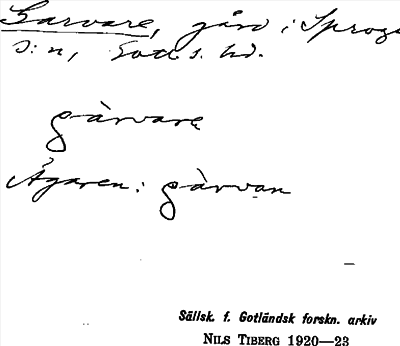 Garvare, gård i Sproge
S:n, Gotl. s. hd.
gàrvarę
Ägaren: gàrvan
Sällsk. f. Gotländsk forskn. arkiv
NILS TIBERG 1920—23